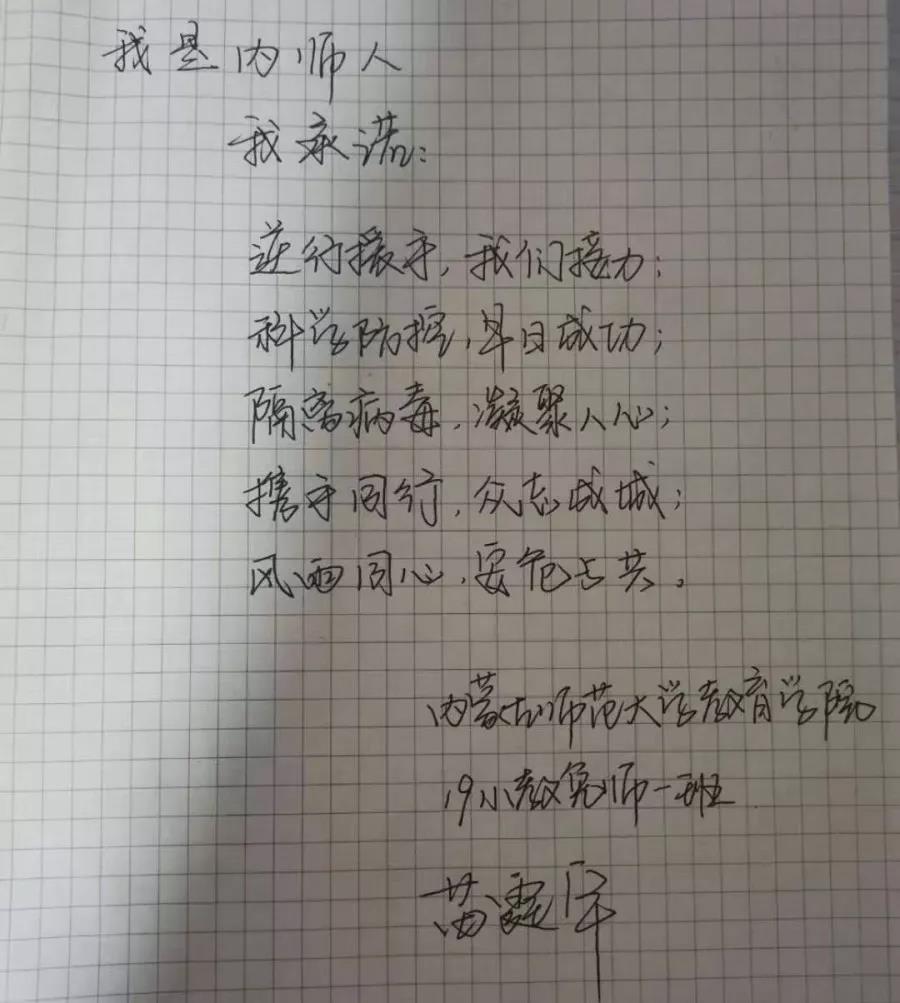 我是内师人
我承诺：
逆行援手，我们接力；
科学防控，早日成功；
隔离病毒，凝聚人心；
携手同行，众志成城；
风雨同心，安危与共。
内蒙古师范大学教育学院
19小教免师一班
苗霆